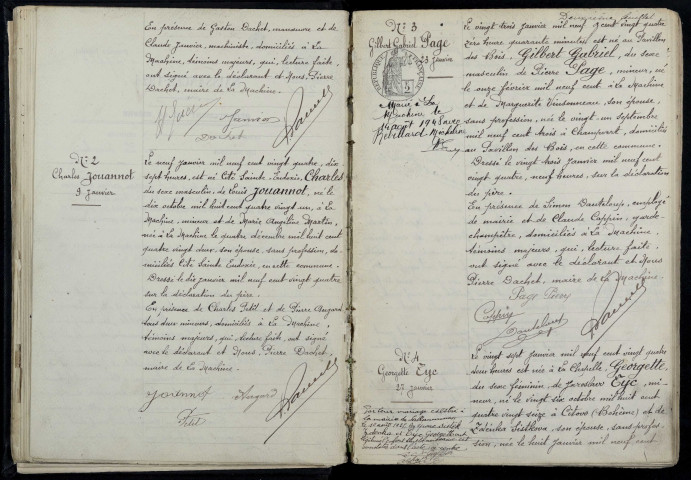 En présence de Gaston Dachet, manœuvre et de
Claude Janvier, machiniste, domiciliés à La
Machine, témoins majeurs, qui, lecture faite,
ont signé avec le déclarant et Nous, Pierre
Dachet, maire de La Machine.
Janvier
Dachet
N° 2
Charles Jouannot
9 Janvier
Le neuf janvier mil neuf cent vingt quatre, dix
sept heures, est né Cité Sainte-Eudoxie, Charles
du sexe masculin, de Louis Jouannot, né le
dix octobre mil huit cent quatre vingt un, à La
Machine, mineur et de Marie Angéline Martin,
née à La Machine le quatre décembre mil huit cent
quatre vingt deux, son épouse, sans profession, do-
miciliés Cité Sainte Eudoxie, en cette commune.
Dressé le dix janvier mil neuf cent vingt quatre
sur la déclaration du père.
En présence de Charles Petit et de Pierre Augard
tous deux mineurs, domiciliés à La Machine,
témoins majeurs, qui, lecture faite, ont signé
avec le déclarant et Nous, Pierre Dachet,
maire de La Machine.
Jouannot Augard
Petit
N° 3
Gilbert Gabriel Page
23 Janvier
Marié à La
Machine le
août 1948 avec
Micheline
Le vingt trois janvier mil neuf cent vingt quatre
zéro heure quarante minutes est né au Pavillon
des Bois, Gilbert Gabriel, du sexe
masculin de Pierre Page, mineur, né
le onze février mil neuf cent à La Machine
et de Marguerite Vindonneau, son épouse,
sans profession, née le vingt un septembre
mil neuf cent trois à Champvert, domiciliés
au Pavillon des Bois, en cette commune.
Dressé le vingt trois janvier mil neuf cent
vingt quatre, neuf heures, sur la déclaration
du père.
En présence de Simon Dauteloup, employé
de mairie et de Claude Coppin, garde-
champêtre, domiciliés à La Machine,
témoins majeurs, qui, lecture faite,
ont signé avec le déclarant et Nous
Pierre Dachet, maire de La Machine.
Page Pierre
Coppin
Dauteloup
N° 4
Georgette Tyc
27 Janvier
Le vingt sept janvier mil neuf cent vingt quatre
heures est née à La Chapelle, Georgette,
du sexe féminin de Jaroslaus Tyc, mi-
neur, né le vingt six octobre mil huit cent
quatre vingt seize à (Bohême) et de
Zdenka son épouse, sans profes-
sion, née le huit janvier mil neuf cent